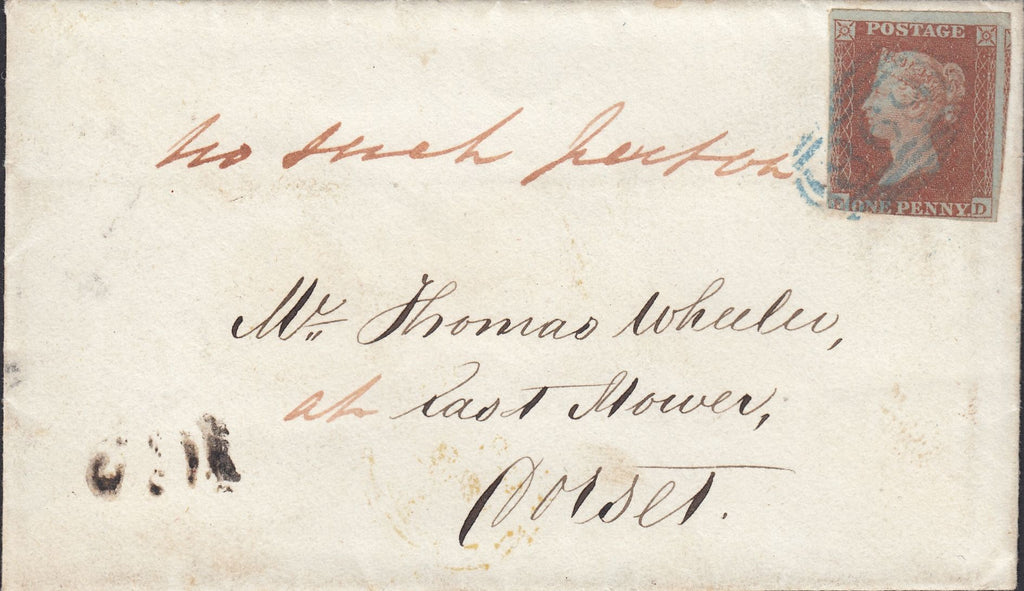 POSTAGE
ONE PENNY. D
no such person
Mr. Thomas Wheeler,
at East Stower,
Dorset.